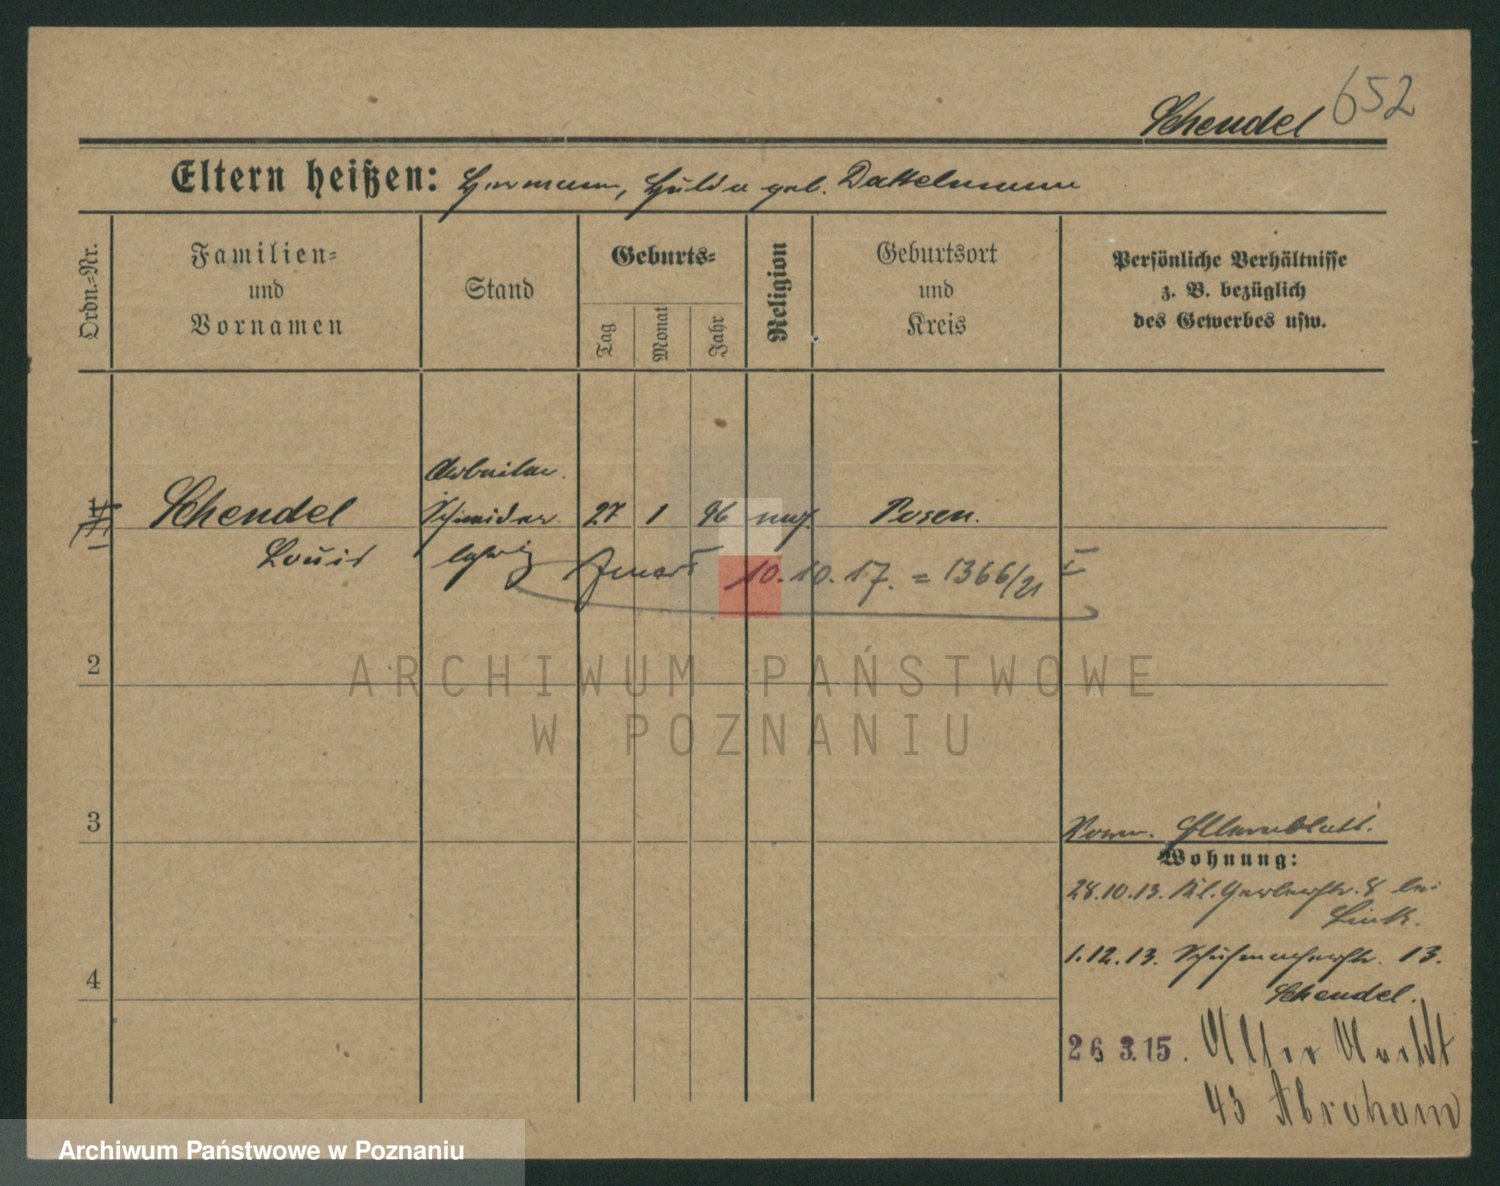 Schendel 652
Eltern heißen: Hermann, Hulda geb. Dattelmann
Ordn.=Nr.
Familien=
und
Vornamen
Stand
Geburts=
Tag
Monat
Jahr
Religion
Geburtsort
und
Kreis
Persönliche Verhältnisse
z. B. bezüglich
des Gewerbes usw.
Arbeiter.
1 Schendel Schneider 27 1 96 Posen.
Louis 10.10.17. = 1366/21
2
ARCHIWUM PAŃSTWOWE
W POZNANIU
3
Elternblatt.
Wohnung:
28.10.13. Kl. Gerberstr. 8 bei
Link.
4
1.12.13. Schuhmacherstr. 13.
Schendel.
26 3.15. Alter Markt
43 Abraham
Archiwum Państwowe w Poznaniu